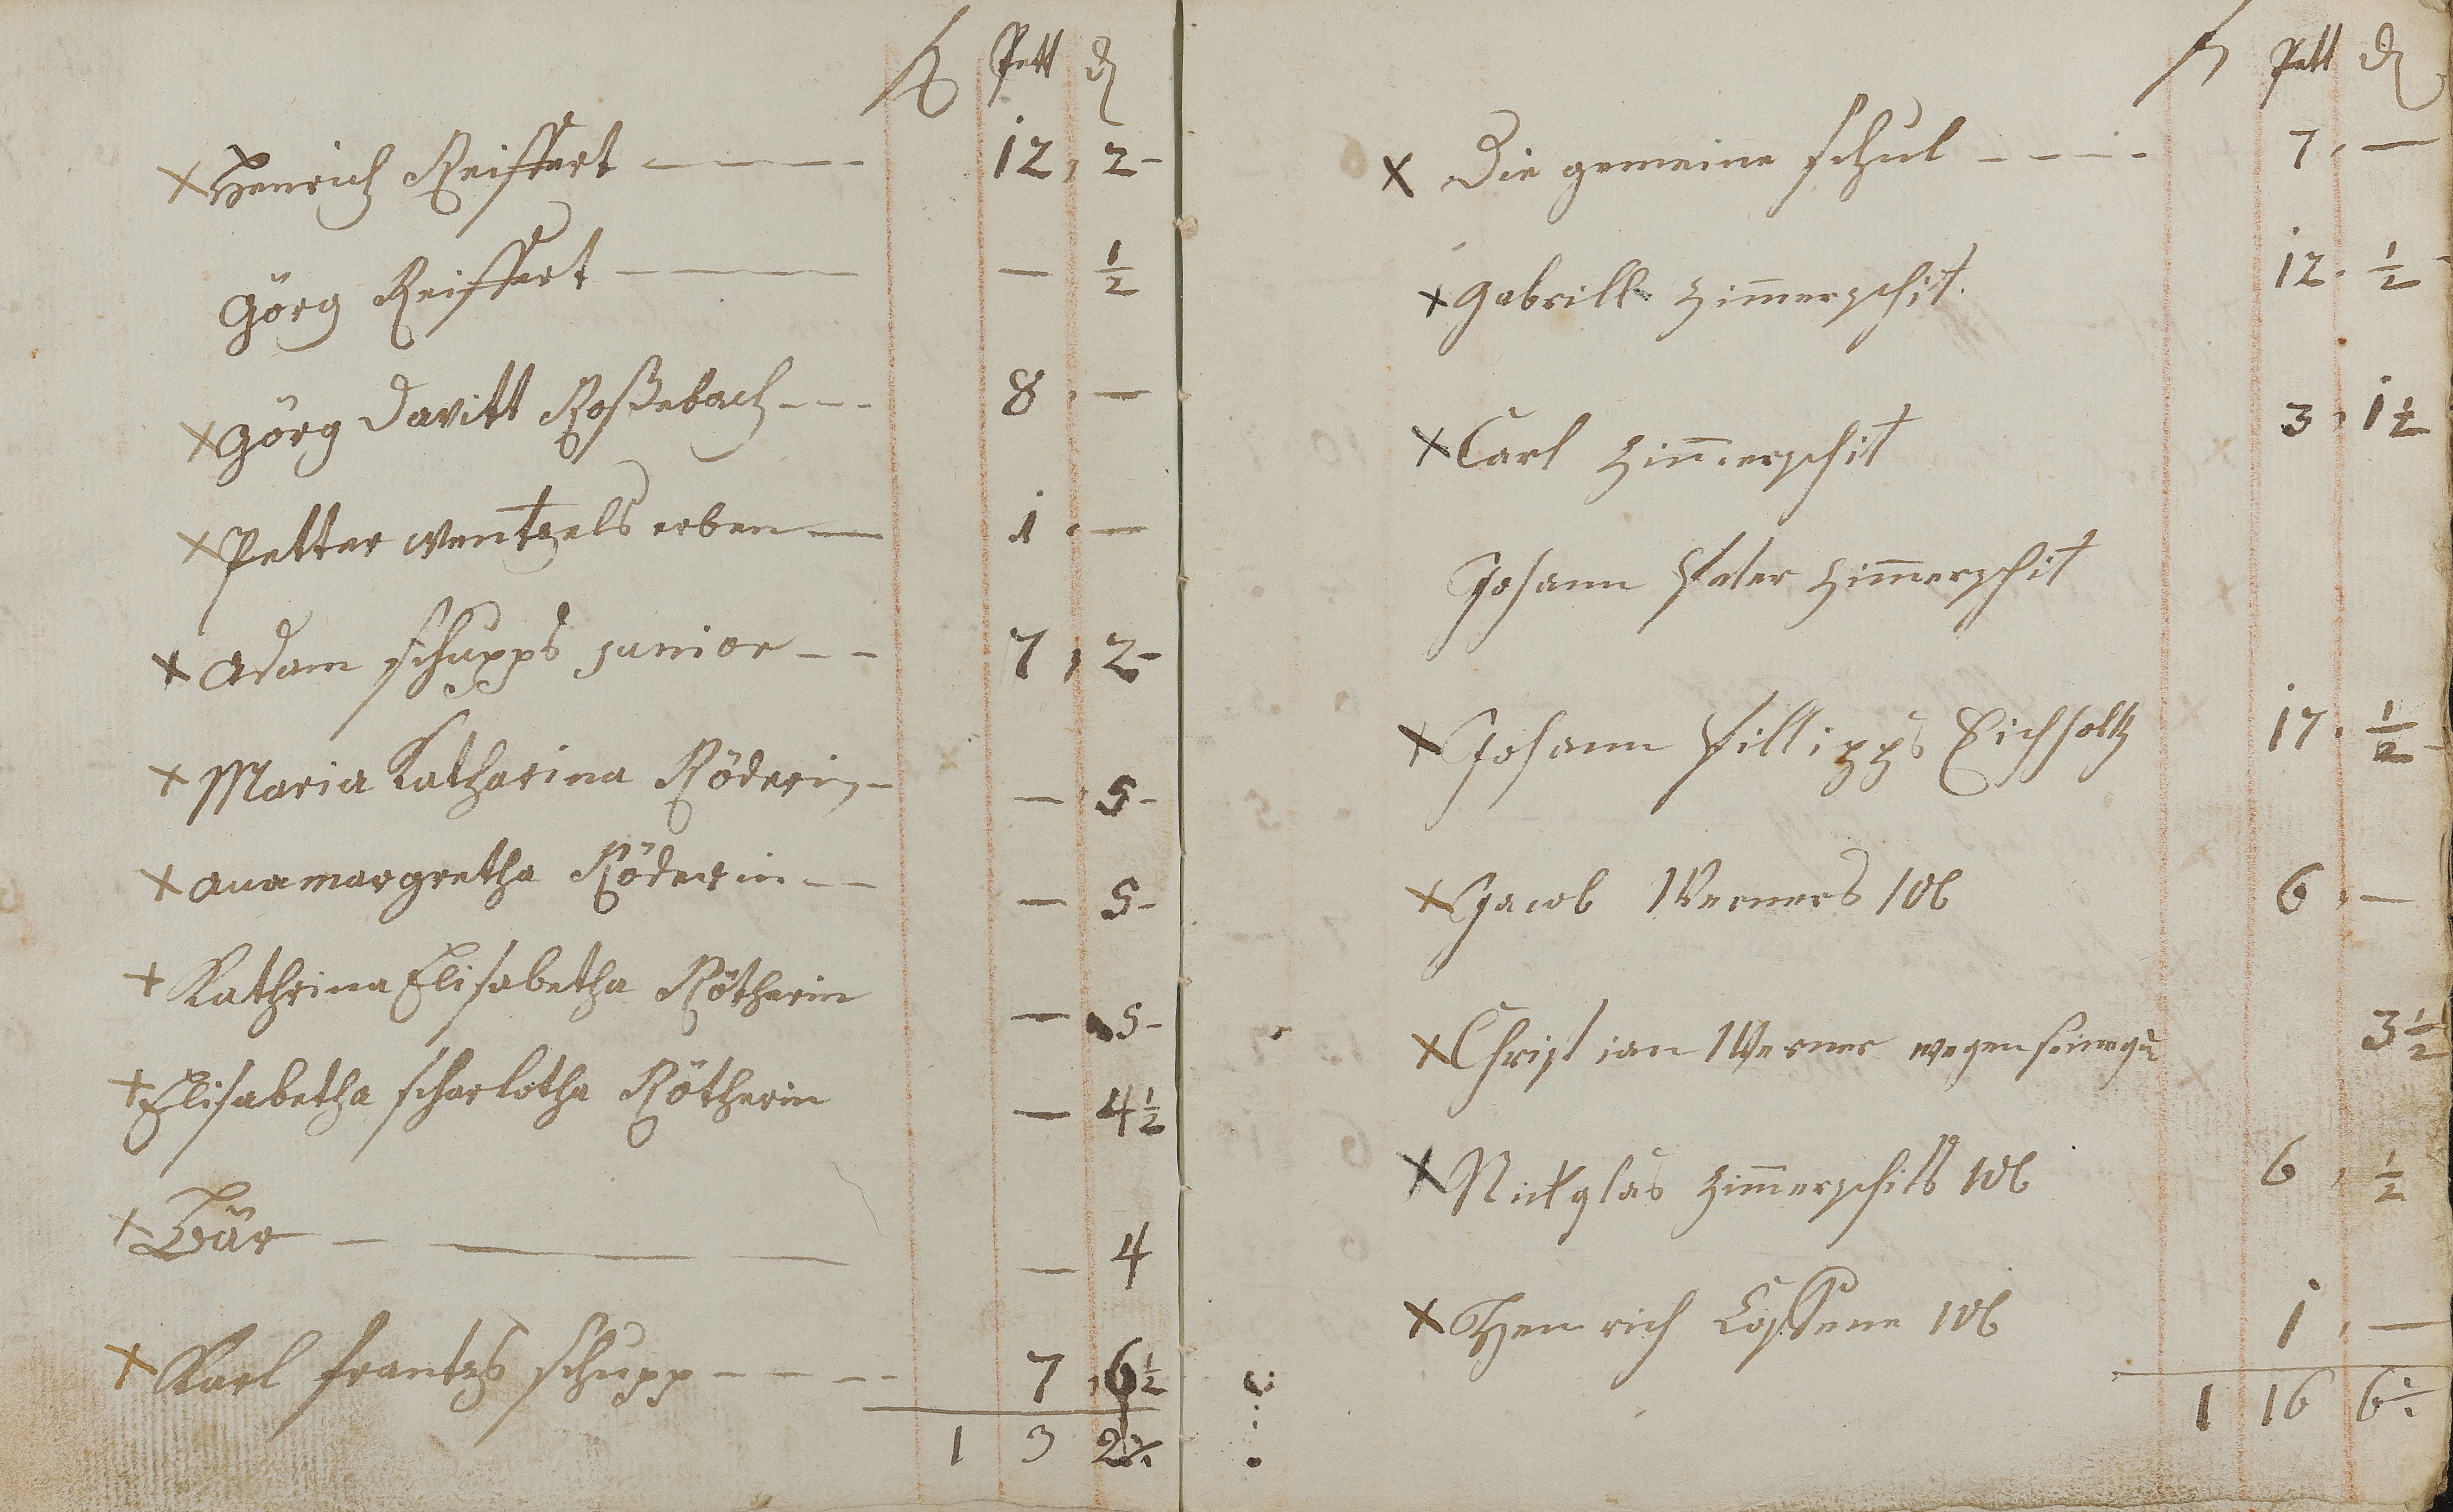 fl Pett d
x Henrich Reiffert — 12, 2-
Görg Reiffert — — ½
x Görg Davitt Roßebach --- 8, —
x Petter wentzels erben — 1, —
x Adam schupps junior -- 7, 2-
x Maria Katharina Röderin - — 5-
x anamargretha Röderin -- — 5-
x Kathrina Elisabetha Rötherin — 5-
x Elisabetha scharlotha Rötherin — 4½
x Bär — — 4
x Karl frantz schupp ---- 7, 6½
1 3
Pett d
x Die gemeine schul ---- 7, —
x gabrill Zimmerschit. 12, ½
x Carl Zimmerschit 3, 1½
Johann Peter Zimmerschit
x Johann fillipps Eichholtz 17, ½
x Jacob Werners Wb 6, —
x Christian Werner wegen 3½
x Nickglas Zimmerschits Wb 6, ½
x Henrich Wb 1, —
1 16 6½